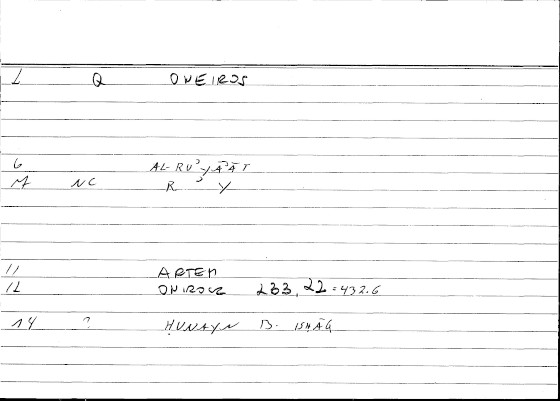 1 Q ONEIROS
6 AL-RUʾYĀʾĀT
M NC R ʾ Y
11 ARTEM
12 ONIROCR 233, 22 = 432.6
14 ? ḤUNAYN B. ISḤĀQ